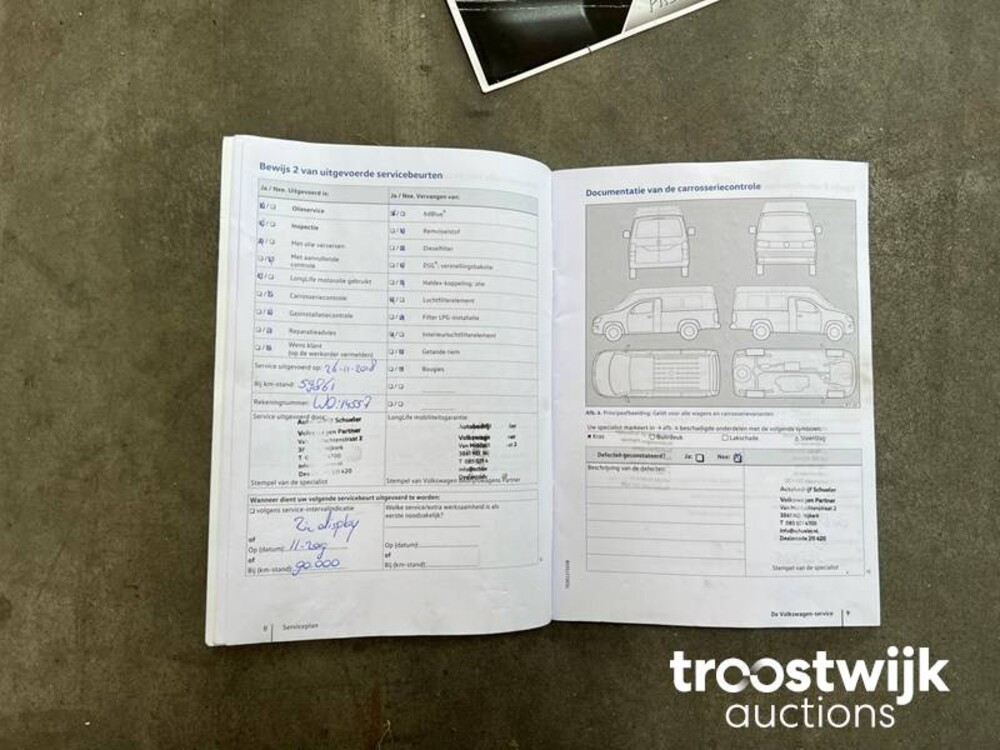 Bewijs 2 van uitgevoerde servicebeurten
Ja / Nee. Uitgevoerd is:
Olieservice
Inspectie
Met olie verversen
Met aanvullende
controle
LongLife motorolie gebruikt
Carrosseriecontrole
Gasinstallatiecontrole
Reparatieadvies
Wens klant
(op de werkorder vermelden)
Ja / Nee. Vervangen van:
AdBlue®
Remvloeistof
Dieselfilter
DSG®: versnellingsbakolie
Haldex-koppeling: olie
Luchtfilterelement
Filter LPG-installatie
Interieurluchtfilterelement
Getande riem
Bougies
Service uitgevoerd op: 26-11-2018
Bij km-stand: 59861
Rekeningnummer: WO:14557
Service uitgevoerd door:
Schueler
Partner
Stempel van de specialist
LongLife mobiliteitsgarantie:
Autobedrijf
Volkswagen
Dealercode
Stempel van Volkswagen Bedrijfswagens Partner
Wanneer dient uw volgende servicebeurt uitgevoerd te worden:
volgens service-intervalindicatie
Zie display
of
Op (datum): 11-2019
of
Bij (km-stand): 90.000
Welke service/extra werkzaamheid is als
eerste noodzakelijk?
Op (datum):
of
Bij (km-stand):
8 Serviceplan
Documentatie van de carrosseriecontrole
Afb. 4 Principeafbeelding: Geldt voor alle wagens en carrosserievarianten
Uw specialist markeert in → afb. 4 beschadigde onderdelen met de volgende symbolen:
Kras
Buil/deuk
Lakschade
Steenslag
Defecten geconstateerd? Ja: Nee:
Beschrijving van de defecten:
Autobedrijf Schueler
Volkswagen Partner
Nijkerk
Dealercode 211 420
Stempel van de specialist
De Volkswagen-service 9
troostwijk
auctions